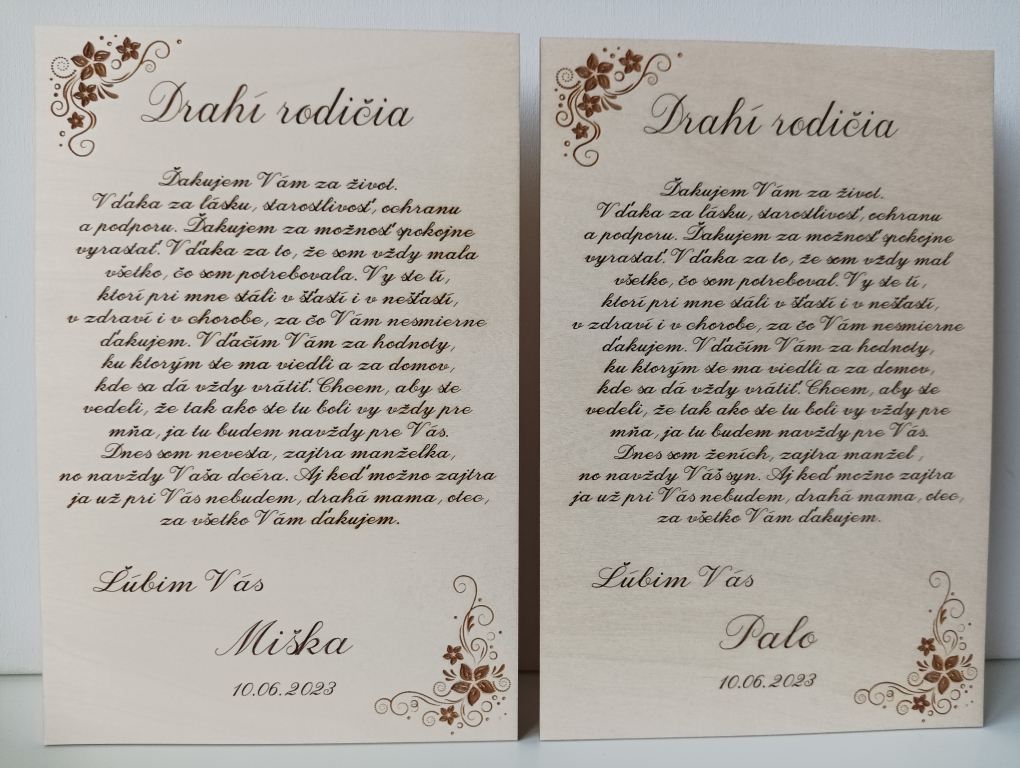 Drahí rodičia
Ďakujem Vám za život.
Vďaka za lásku, starostlivosť, ochranu
a podporu. Ďakujem za možnosť spokojne
vyrastať. Vďaka za to, že som vždy mala
všetko, čo som potrebovala. Vy ste tí,
ktorí pri mne stáli v šťastí i v nešťastí,
v zdraví i v chorobe, za čo Vám nesmierne
ďakujem. Vďačím Vám za hodnoty,
ku ktorým ste ma viedli a za domov,
kde sa dá vždy vrátiť. Chcem, aby ste
vedeli, že tak ako ste tu boli vy vždy pre
mňa, ja tu budem navždy pre Vás.
Dnes som nevesta, zajtra manželka,
no navždy Vaša dcéra. Aj keď možno zajtra
ja už pri Vás nebudem, drahá mama, otec,
za všetko Vám ďakujem.
Ľúbim Vás
Miška
10.06.2023
Drahí rodičia
Ďakujem Vám za život.
Vďaka za lásku, starostlivosť, ochranu
a podporu. Ďakujem za možnosť spokojne
vyrastať. Vďaka za to, že som vždy mal
všetko, čo som potreboval. Vy ste tí,
ktorí pri mne stáli v šťastí i v nešťastí,
v zdraví i v chorobe, za čo Vám nesmierne
ďakujem. Vďačím Vám za hodnoty,
ku ktorým ste ma viedli a za domov,
kde sa dá vždy vrátiť. Chcem, aby ste
vedeli, že tak ako ste tu boli vy vždy pre
mňa, ja tu budem navždy pre Vás.
Dnes som ženích, zajtra manžel,
no navždy Váš syn. Aj keď možno zajtra
ja už pri Vás nebudem, drahá mama, otec,
za všetko Vám ďakujem.
Ľúbim Vás
Palo
10.06.2023